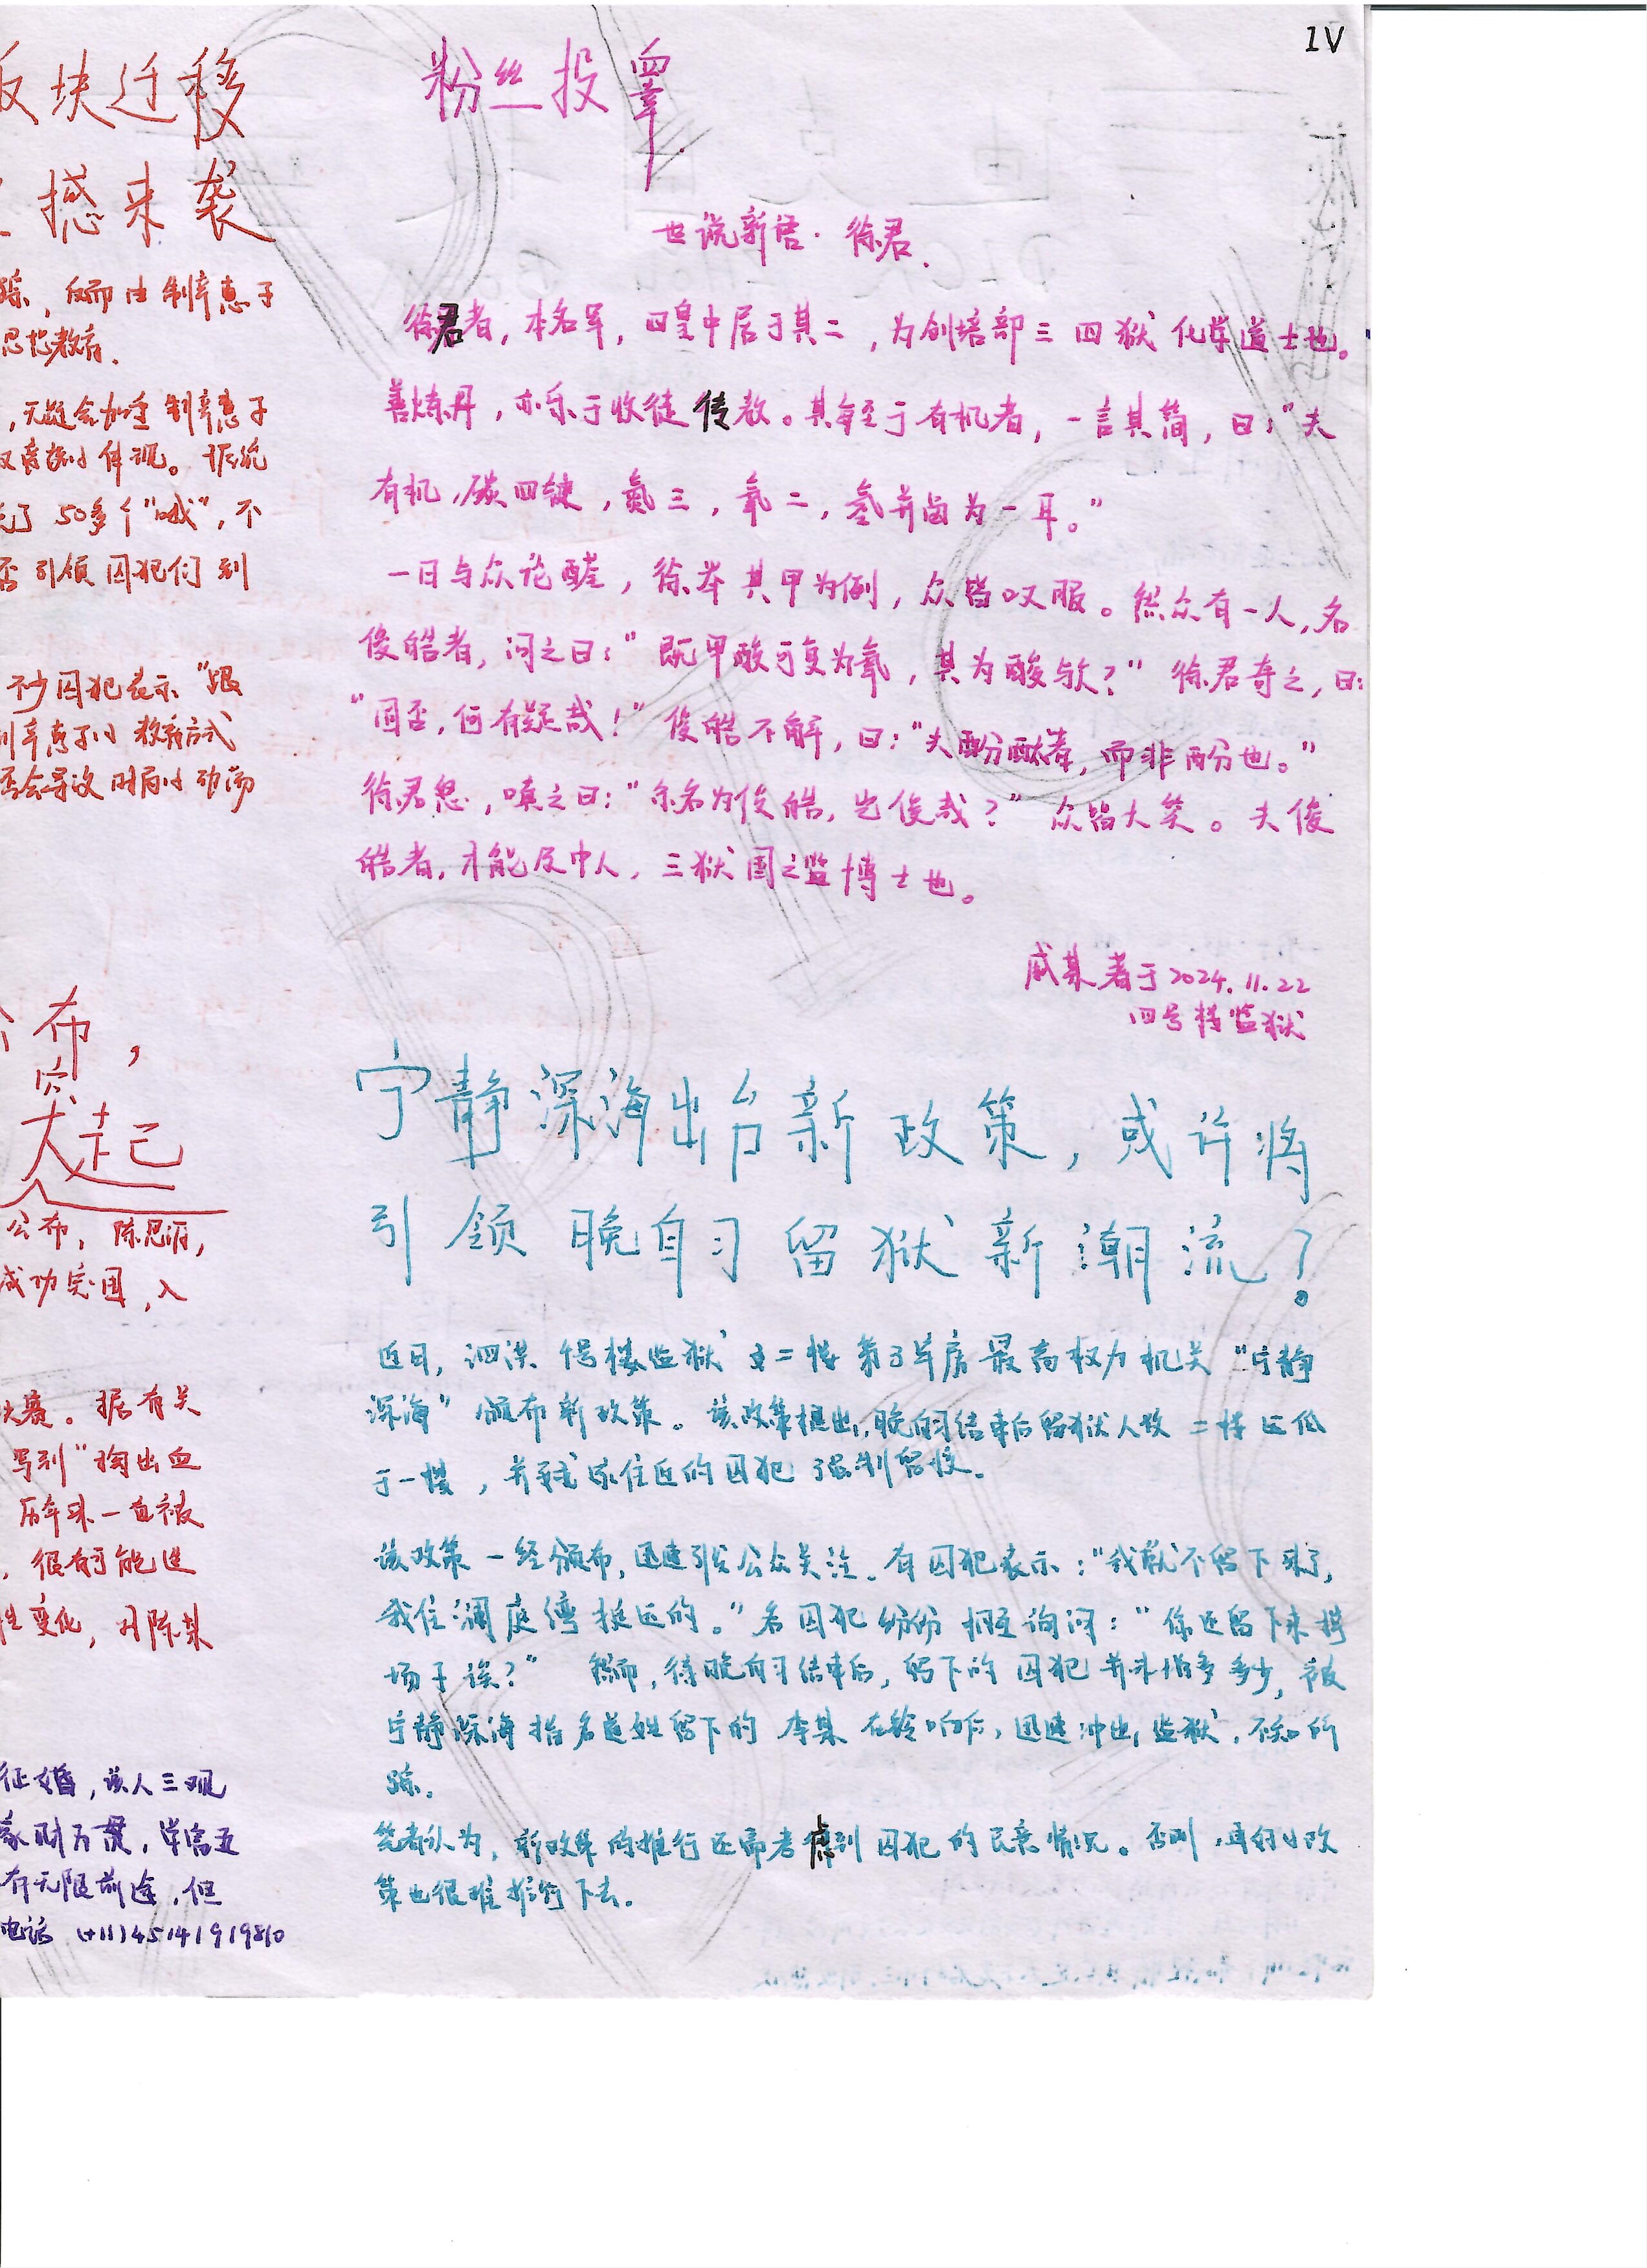 IV
板块迁移
撼来袭
踪，反而由制辛惠子
思想教育.
，无疑会加重制辛惠子
50多个"哦"，不
否引领囚犯们到
不少囚犯表示"跟
制辛惠子小教育方式
否会导致时局小动荡
公布，
突
大起
公布，陈思
成功突围，入
决赛。据有关
写到"掏出血
历年来一直被
，很有可能进
性变化，月陈某
征婚，该人三观
家财万贯，学富五
有无限前途，但
电话 (+11)45141919810
粉丝投稿
世说新语·徐君.
徐君者，本名军，四皇中居于其二，为创培部三四狱化学道士也。
善炼丹，亦乐于收徒传教。其每至于有机者，一言其简，曰："夫
有机，碳四键，氮三，氧二，氢并卤为一耳。"
一日与众论醛，徐举其甲为例，众皆叹服。然众有一人，名
俊皓者，问之曰："既甲酸可复为氧，其为酸与欤？"徐君奇之，曰：
"固否，何有疑哉！"俊皓不解，曰："夫酚酞者，而非酚也。"
徐君怒，嗔之曰："尔名为俊皓，岂俊哉？"众皆大笑。夫俊
皓者，才能及中人，三狱国之监博士也。
戚某著于2024.11.22
四号楼监狱
宁静深海出台新政策，或许将
引领晚自习留狱新潮流？
近日，泗洪4号楼监狱二楼第3牢房最高权力机关"宁静
深海"颁布新政策。该政策提出，晚自习结束后留狱人数二楼远低
于一楼，并要求家住近的囚犯强制留校。
该政策一经颁布，迅速引发公众关注。有囚犯表示："我就不留下来了，
我住澜庭湾挺远的。"名囚犯纷纷相互询问："你还留下来撑
场子诶？" 然而，待晚自习结束后，留下的囚犯并未增多多少，被
宁静深海指名道姓留下的李某在铃响后，迅速冲出监狱，不知所
踪.
笔者认为，新政策的推行还需考虑到囚犯的民意情况。否则，再好小政
策也很难推行下去.